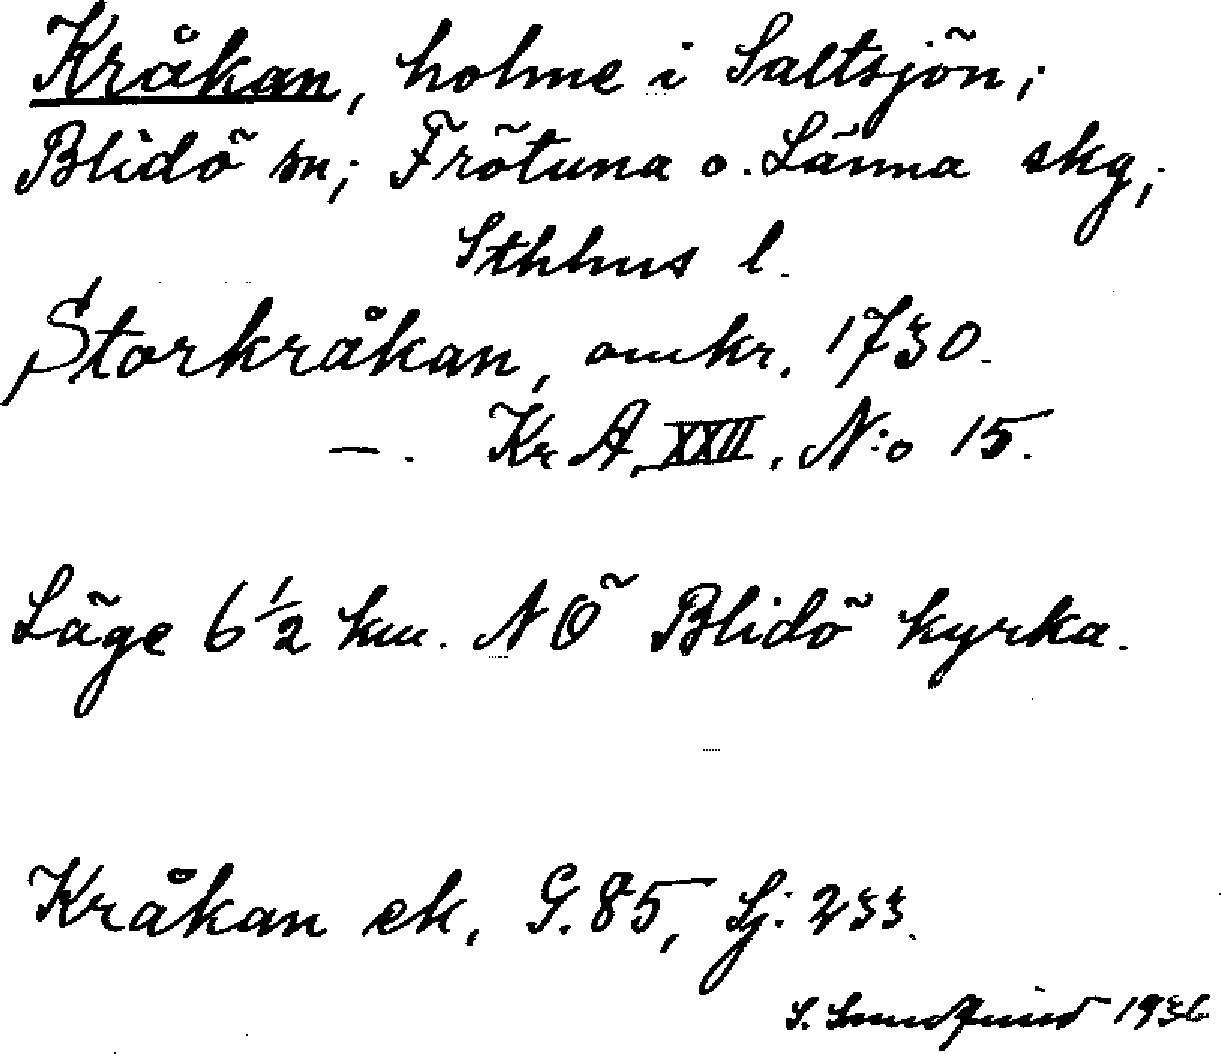 Kråkan, holme i Saltsjön;
Blidö sn; Frötuna o. Länna skg,
Sthlms l.
Storkråkan, omkr. 1730.
—. Kr A, XXII, N:o 15.
Läge 6 1/2 km. NÖ Blidö kyrka.
Kråkan ek, G. 85, Sj: 233.
S. 1936